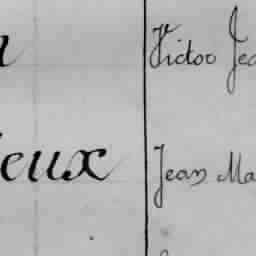 Victor Jea
eux
Jean Ma